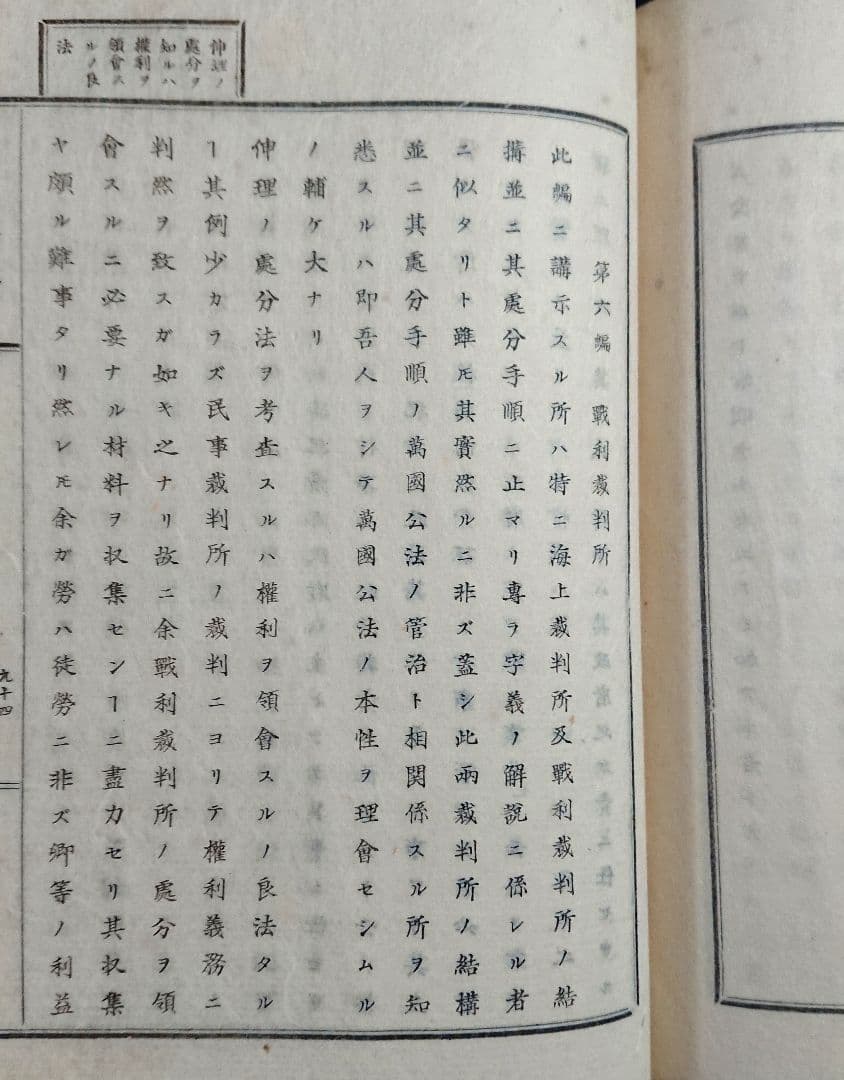 第六編 戰利裁判所
此編ニ講示スル所ハ特ニ海上裁判所及戰利裁判所ノ結
搆並ニ其處分手順ニ止マリ專ラ字義ノ解説ニ係レル者
ニ似タリト雖モ其實然ルニ非ズ蓋シ此兩裁判所ノ結構
並ニ其處分手順ノ萬國公法ノ管治ト相関係スル所ヲ知
悉スルハ即吾人ヲシテ萬國公法ノ本性ヲ理會セシムル
ノ輔ケ大ナリ
伸理ノ處分法ヲ考査スルハ權利ヲ領會スルノ良法タル
ヿ其例少カラズ民事裁判所ノ裁判ニヨリテ權利義務ニ
判然ヲ致スガ如キ之ナリ故ニ余戰利裁判所ノ處分ヲ領
會スルニ必要ナル材料ヲ収集センヿニ盡力セリ其収集
ヤ頗ル難事タリ然レ𪜈余ガ勞ハ徒勞ニ非ズ卿等ノ利益
伸理ノ
處分ヲ
知ルハ
權利ヲ
領會ス
ルノ良
法
九十四